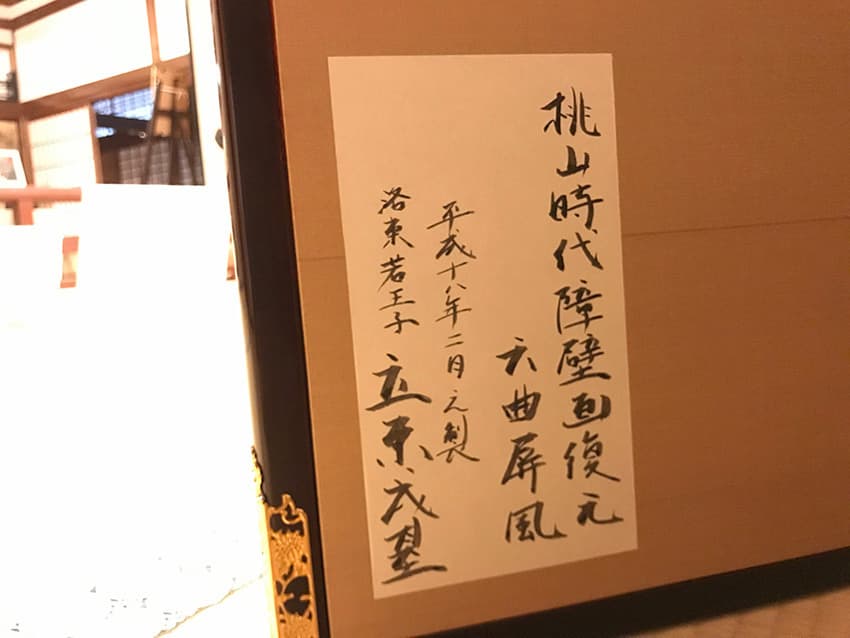 桃山時代障壁画復元
六曲屏風
平成十八年二月之製
洛東若王子